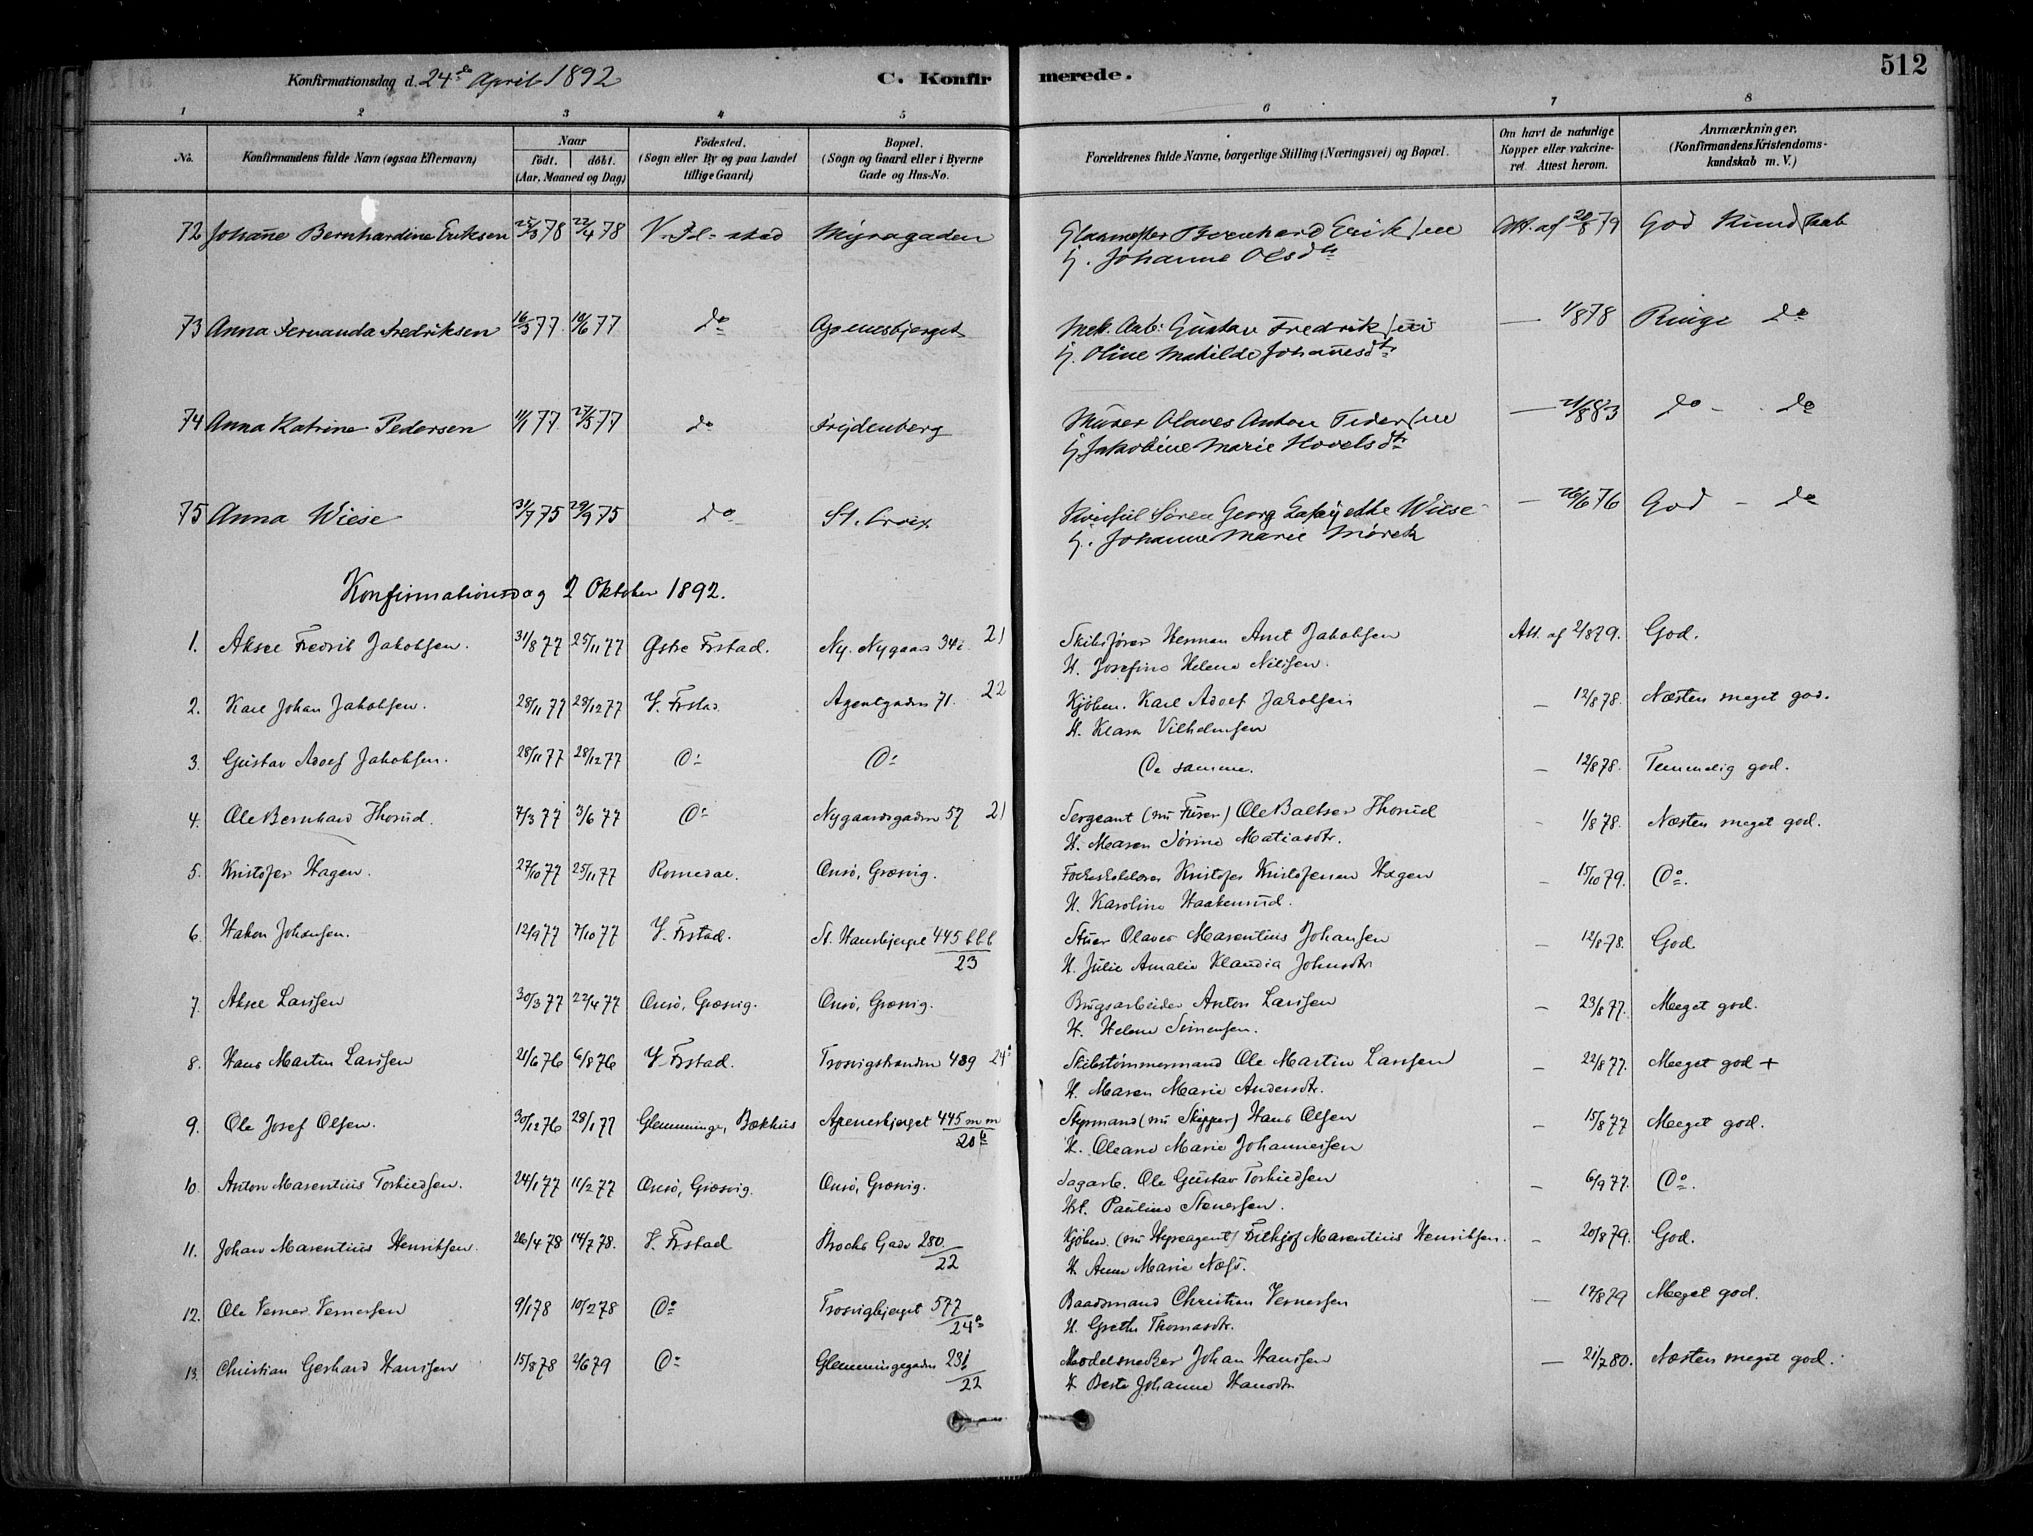 Konfirmationsdag d. 24de April 1892 C. Konfirmerede. 512
1 2 3 4 5 6 7 8
No. Konfirmandens fulde Navn (ogsaa Efternavn) Naar født. døbt. (Aar, Maaned og Dag) Fødested. (Sogn eller By og paa Landet tillige Gaard) Bopæl. (Sogn og Gaard eller i Byerne Gade og Hus-No. Forældrenes fulde Navne, borgerlige Stilling (Næringsvei) og Bopæl. Om havt de naturlige Kopper eller vakcineret. Attest herom. Anmærkninger. (Konfirmandens Kristendomskundskab m. V.)
72 Johanne Bernhardine Eriksen 25/3 78 22/4 78 V. Fr.stad Myragaden Glasmester Bernhard Eriksen Att. af 20/8 79 God Kundskab
H. Johanne Olsdtr
73 Anna Fernanda Fredriksen 16/3 77 10/6 77 do Apenesbjerget Mek. Arb: Gustav Fredriksen — 1/8 78 Ringe do
H. Oline Matilde Johannesdtr
74 Anna Katrine Pedersen 1/1 77 27/5 77 do Frydenberg Murer Olaves Anton Pedersen — 21/8 83 do - do
H. Jakobine Marie Hovelsdtr
75 Anna Wiese 31/7 75 29/9 75 do St. Croix Konsul Søren Georg Lafayette Wiese — 26/6 76 God - do
H. Johanne Marie Mørch
Konfirmationsdag 2 Oktober 1892.
1. Aksel Fredrik Jakobsen. 31/8 77 25/11 77 Østre Frstad. Ny. Nygaas 34i 21 Skibsfører Herman Amt Jakobsen Att. af 2/8 79. God.
H. Josefine Helene Nilsen.
2. Karl Johan Jakobsen. 28/11 77 28/12 77 V. Frstad Agentgaden 71. 22 Kjøbm. Karl Adolf Jakobsen — 12/8 78. Næsten meget god.
H. Klara Vilhelmsen
3. Gustav Adolf Jakobsen. 28/11 77 28/12 77 Do Do De samme. — 12/8 78. Temmelig god.
4. Ole Bernhard Thorud. 7/3 77 3/6 77 Do Nygaardsgaden 57 21 Sergeant (nu Furer) Ole Baltser Thorud - 1/8 78. Næsten meget god.
H. Maren Sørine Matiasdtr.
5. Kristofer Hagen. 27/10 77 25/11 77 Romedal. Onsø, Græsvig. Folkeskolelærer Kristofer Kristofersen Hagen - 15/10 79. Do.
H. Karoline Haakensrud.
6. Hakon Johansen. 12/9 77 7/10 77 V. Frstad. St. Hansbjerget 445 bbb Stuer Olaves Marentius Johansen — 12/8 78. God
23 H. Julie Amalie Klaudia Johnsdtr
7. Aksel Larssen 30/3 77 22/4 77 Onsø, Græsvig. Onsø, Græsvig. Brugsarbeider Anton Larssen — 23/8 77. Meget god.
H. Helene Simensen.
8. Hans Martin Larssen 21/6 76 6/8 76 V. Frstad. Trosvigstranden 489 24a Skibstømmermand Ole Martin Larssen - 22/8 77. Meget god +
H. Maren Marie Andersdtr.
9. Ole Josef Olsen. 30/12 76 28/1 77 Glemminge, Bækhus Apenesbjerget 445 mm Styrmand (nu Skipper) Hans Olsen - 15/8 77 Meget god.
20b H. Oleane Marie Johannessen
10. Anton Marentius Torkildsen. 24/1 77 11/2 77 Onsø, Græsvig. Onsø, Græsvig. Sagarb. Ole Gustav Torkildsen - 6/9 77. Do.
Hst. Pauline Stenersen.
11. Johan Marentius Henriksen. 26/4 78 14/7 78. V. Frstad Brochs Gade 280 Kjøbm. (nu Hyreagent) Fritjof Marentius Henriksen. - 20/8 79. God.
22 H. Anne Marie Næss.
12. Ole Verner Vernersen 9/1 78 10/2 78 Do Trosvigbjerget 577 Baadsmand Christian Vernersen — 17/8 79 Meget god.
24a H. Grethe Thomasdtr.
13. Christian Gerhard Hanssen 15/8 78 2/6 79 Do Glemmingegaden 231 Modelsnedker Johan Hanssen — 21/7 80. Næsten meget god.
22 H Berte Johanne Hansdtr